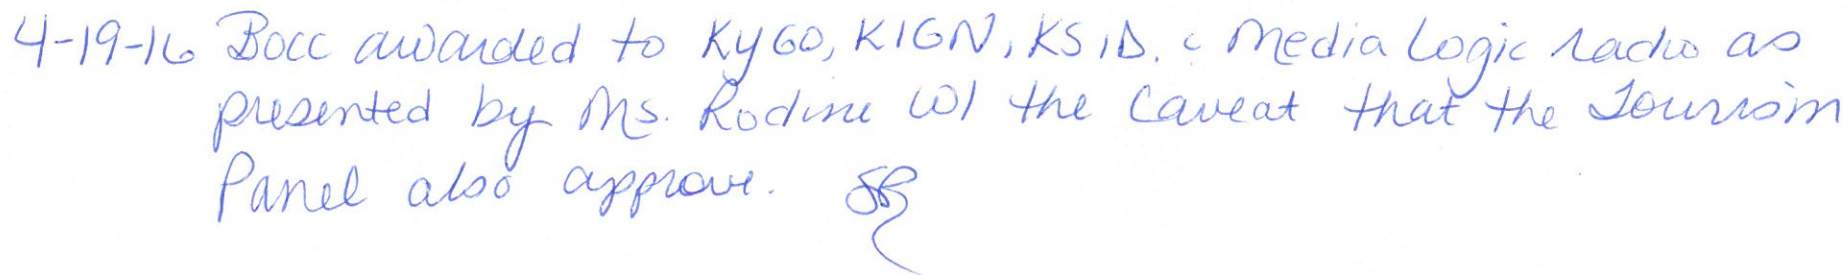 4-19-16 Bocc awarded to KYGO, KIGN, KSID. & Media Logic radio as
presented by Ms. Rodine w/ the caveat that the Tourism
Panel also approve.